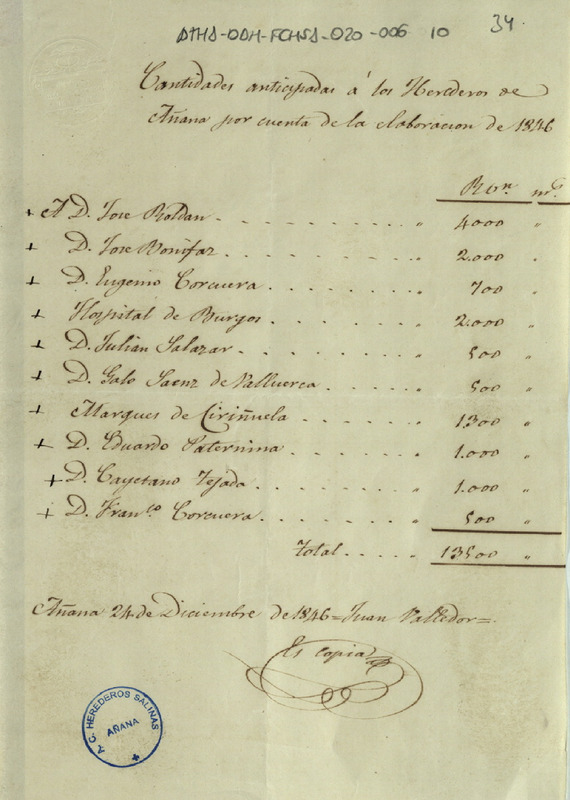 ATHA-DAH-FCHSA-020-006 10 34
Cantidades anticipadas á los Herederos de
Añana por cuenta de la elaboracion de 1846
Rvon. mrs.
+ A D. Jose Roldan . . . . . . . . " 4000 "
+ D. Jose Bonifaz . . . . . . . . " 2.000 "
+ D. Eugenio Corcuera . . . . . . . " 700 "
+ Hospital de Burgos . . . . . . . " 2.000 "
+ D. Julian Salazar . . . . . . . . " 500 "
+ D. Galo Saenz de Valluerca . . . . " 500 "
+ Marques de Ciriñuela . . . . . . " 1300 "
+ D. Eduardo Paternina . . . . . . " 1.000 "
+ D. Cayetano Tejada . . . . . . . " 1.000 "
+ D. Franco Corcuera . . . . . . . " 500 "
Total . . . . " 13500 "
Añana 24 de Diciembre de 1846 = Juan Valledor =
Es copia
C. HEREDEROS SALINAS
AÑANA